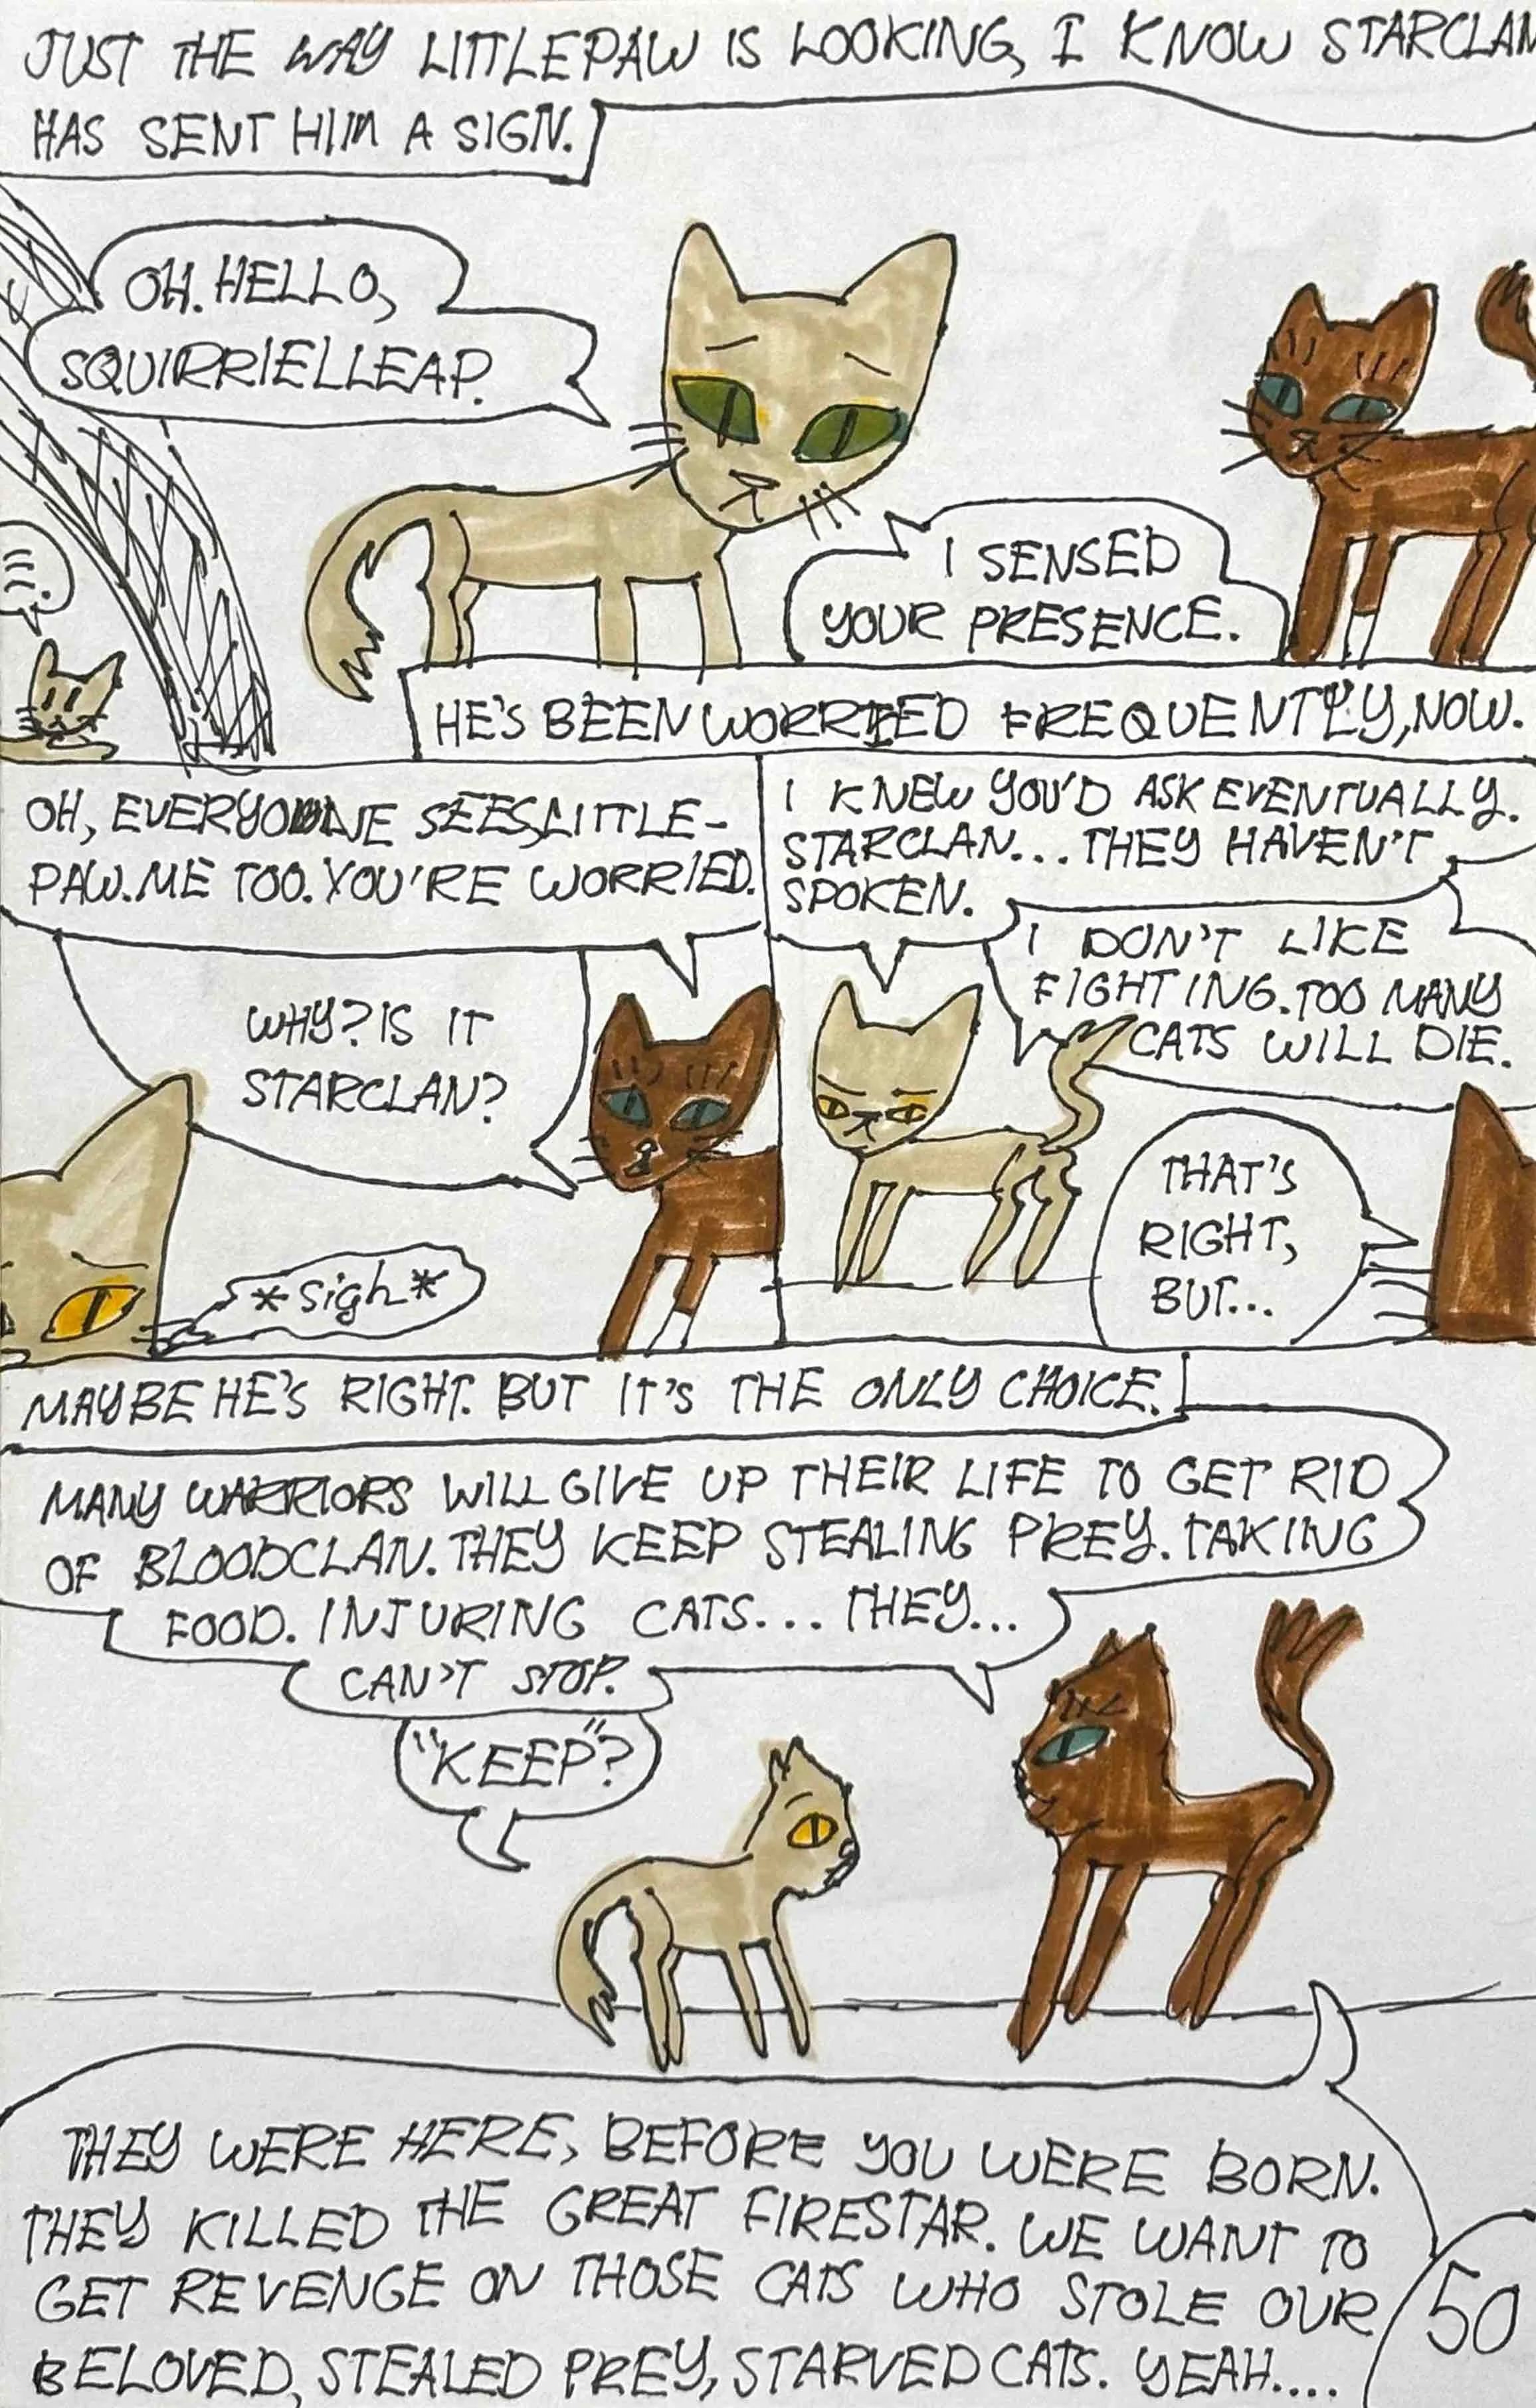 JUST THE WAY LITTLEPAW IS LOOKING, I KNOW STARCLAN
HAS SENT HIM A SIGN.
OH. HELLO,
SQUIRRIELLEAP.
I SENSED
YOUR PRESENCE.
HE'S BEEN WORRIED FREQUENTLY, NOW.
OH, EVERYONE SEES, LITTLE-
PAW. ME TOO. YOU'RE WORRIED.
WHY? IS IT
STARCLAN?
*sigh*
I KNEW YOU'D ASK EVENTUALLY.
STARCLAN... THEY HAVEN'T
SPOKEN.
I DON'T LIKE
FIGHTING. TOO MANY
CATS WILL DIE.
THAT'S
RIGHT,
BUT...
MAYBE HE'S RIGHT. BUT IT'S THE ONLY CHOICE.
MANY WARRIORS WILL GIVE UP THEIR LIFE TO GET RID
OF BLOODCLAN. THEY KEEP STEALING PREY. TAKING
FOOD. INJURING CATS... THEY...
CAN'T STOP.
"KEEP"?
THEY WERE HERE, BEFORE YOU WERE BORN.
THEY KILLED THE GREAT FIRESTAR. WE WANT TO
GET REVENGE ON THOSE CATS WHO STOLE OUR
BELOVED, STEALED PREY, STARVED CATS. YEAH....
50